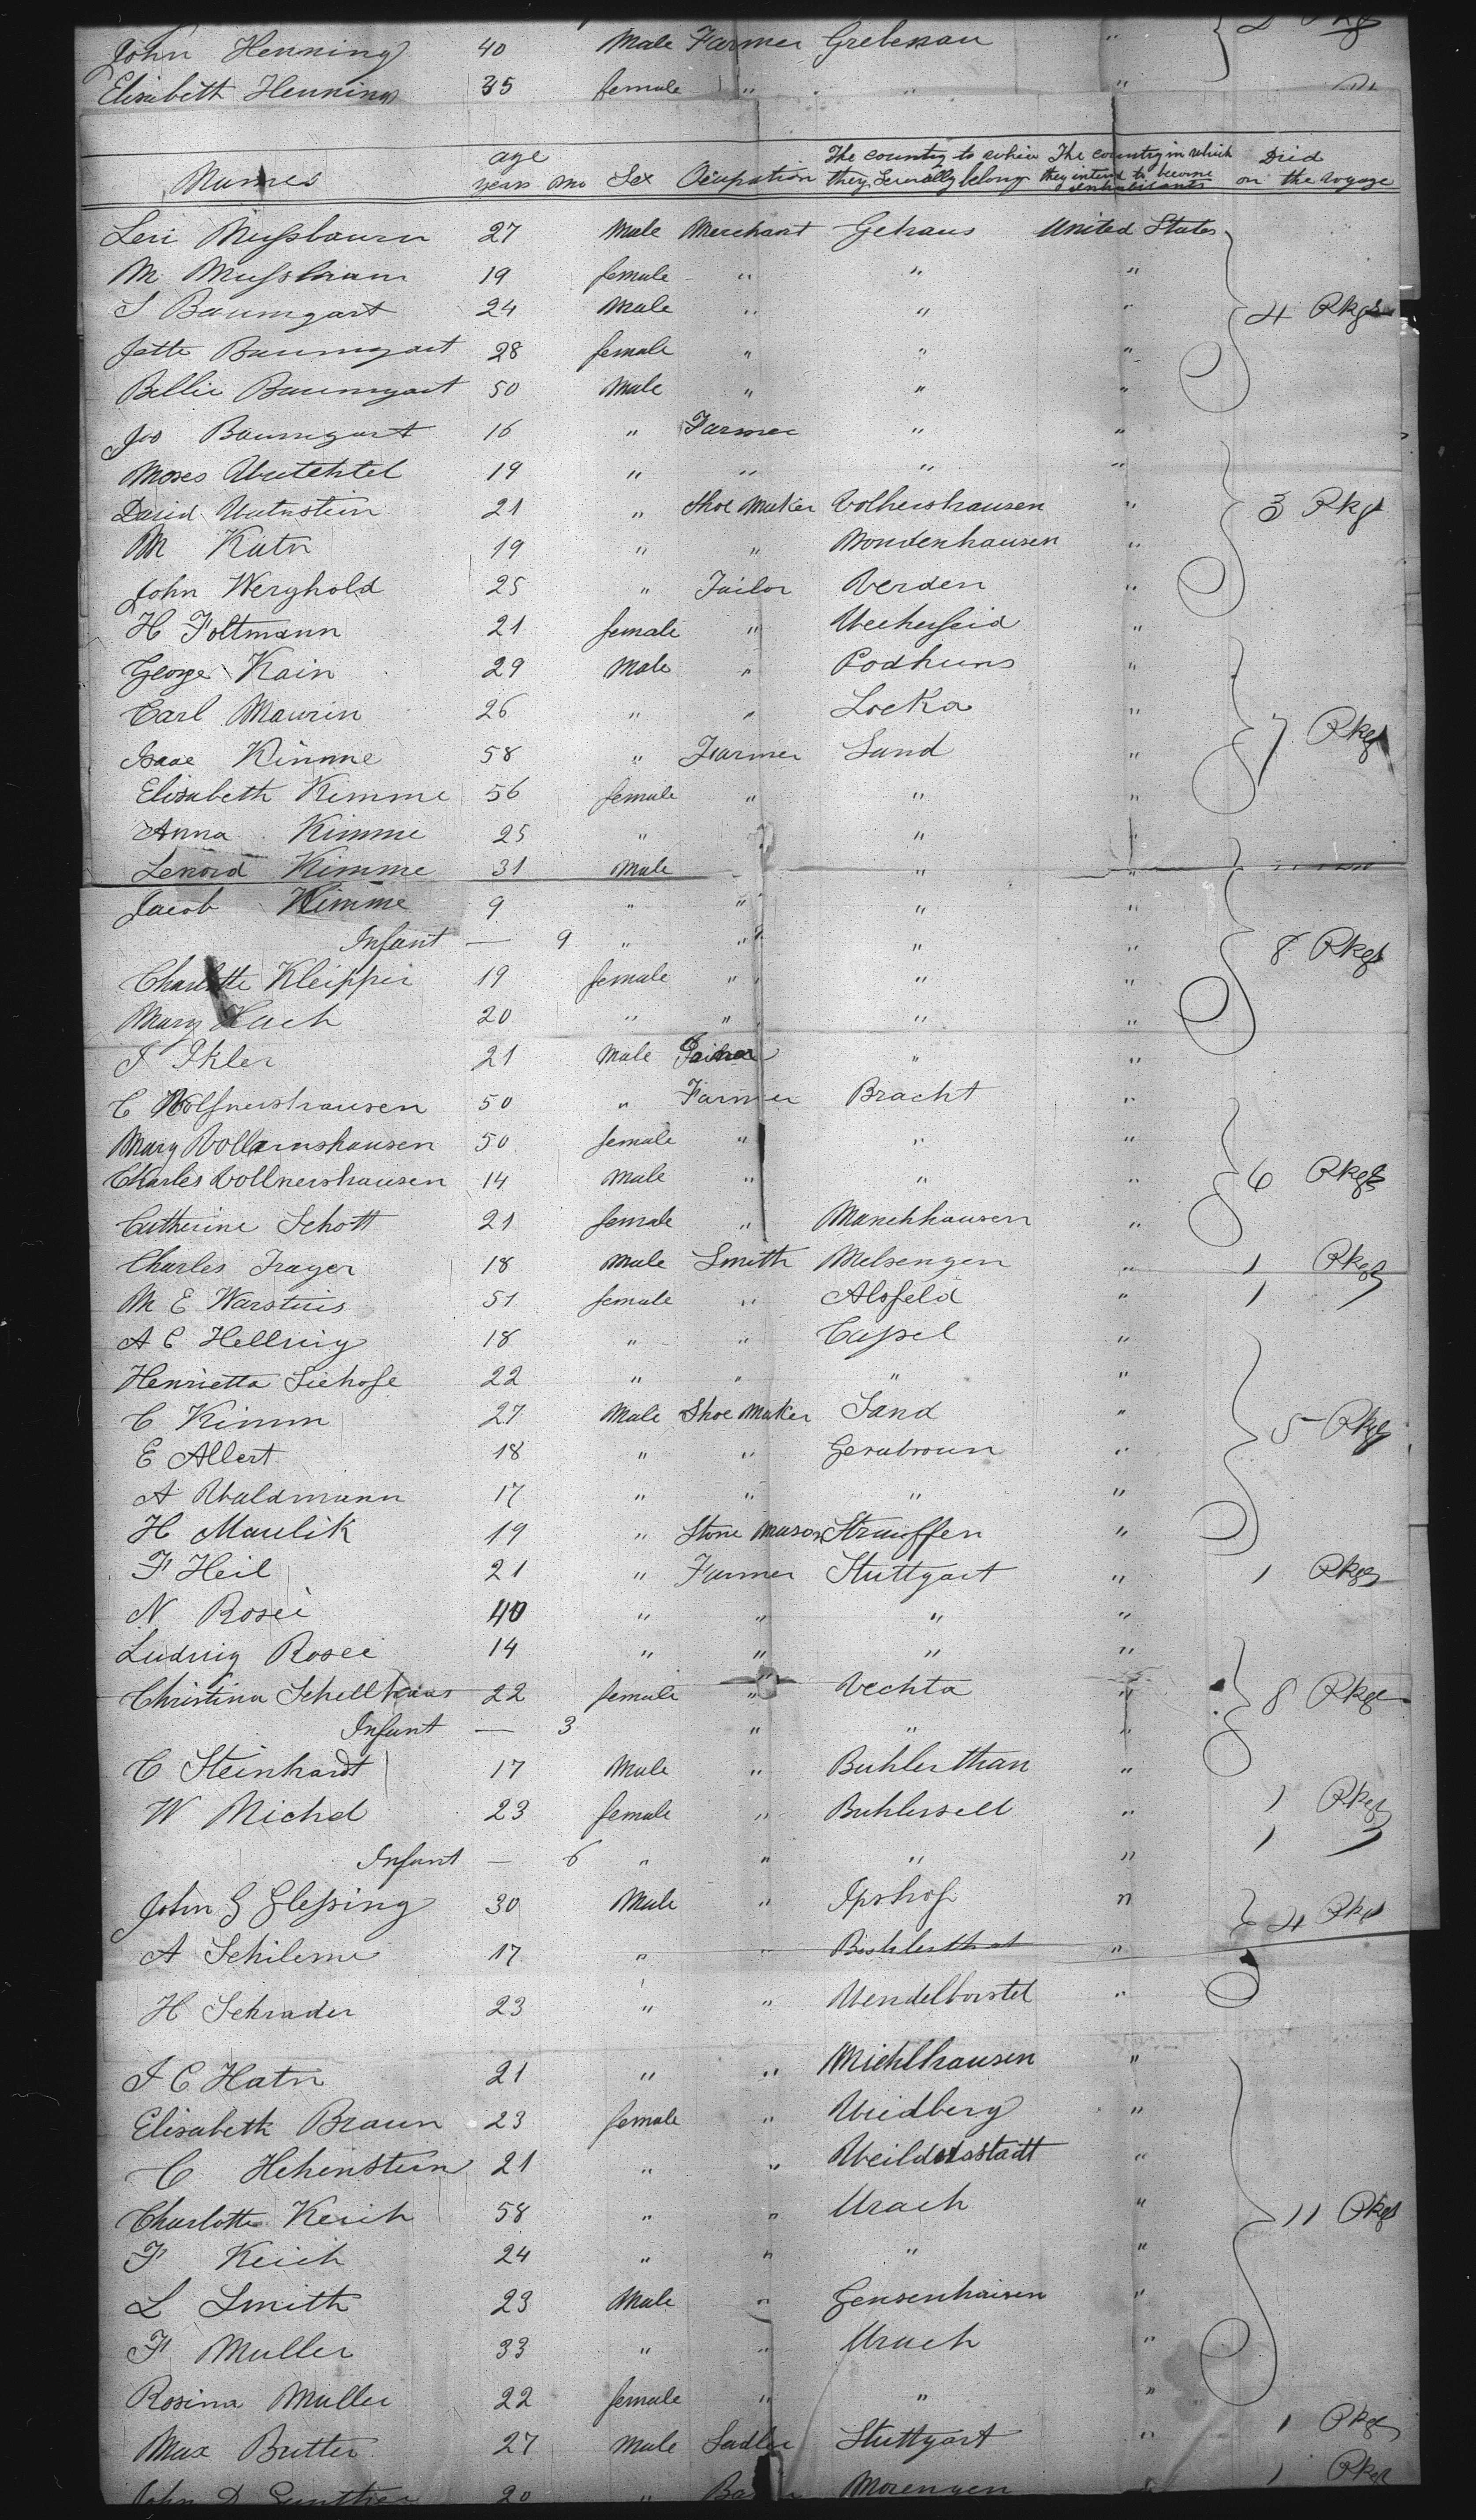 John Henning 40 Male Farmer Grebenau " 2 Pkgs
Elisabeth Henning 35 female " " "
Names age years mo Sex Ocupation The country to which they Severally belong The country in which they intend to become inhabitants Died on the voyage
Levi Mussbaum 27 Male Merchant Gehaus United States
M Mussbaum 19 female " " "
S Baumgart 24 Male " " " 4 Pkgs
Jette Baumgart 28 female " " "
Bellie Baumgart 50 Male " " "
Jos Baumgart 16 " Farmer " "
Moses 19 " " " "
David 21 " Shoe Maker Volkershausen " 3 Pkgs
M Katn 19 " " "
John Werghold 25 " Tailor Verden "
H Foltmann 21 female " "
George Kain 29 Male " Podhuns "
Carl Maurin 26 " " Locka " 7 Pkgs
Isaac Kimme 58 " Farmer Sand "
Elisabeth Kimme 56 female " " "
Anna Kimme 25 " " "
Lenord Kimme 31 Male " " "
Jacob Kimme 9 " " " "
Infant — 9 " " " " 8 Pkgs
Charlotte Kleipper 19 female " " "
Mary Hach 20 " " " "
I Ikler 21 Male " "
C Wolfnershausen 50 " Farmer Bracht "
Mary Vollarnshausen 50 female " " "
Charles Vollnershausen 14 Male " " " 6 Pkgs
Catherine Schott 21 female " Manchhausen "
Charles Trayer 18 Male Smith Melsengen " 1 Pkgs
M E Warstuis 51 female " Alsfeld " 1 "
A C Hellwig 18 " " Cassel "
Henrietta Siehofe 22 " " " "
C Kimm 27 Male Shoe Maker Sand " 5 Pkgs
E Albert 18 " " Gerabronn "
A Waldmann 17 " " " "
H Maulik 19 " Stone Mason Strauffen "
F Heil 21 " Farmer Stuttgart " 1 Pkgs
N Rosei 40 " " " "
Ludwig Rosei 14 " " " "
Christina Schellhaas 22 female " Vechta " 8 Pkgs
Infant — 3 " " "
C Steinhardt 17 Male " Buhlerthan "
W Michel 23 female " Buhlerzell " 1 Pkgs
Infant — 6 " " " " 1 "
John G Glessing 30 Male " Ipshof " 4 Pkgs
A Schileme 17 " " Buhlerthat "
H Schrader 23 " " Wendelborstel "
I C Hatn 21 " " Michlhausen "
Elisabeth Braun 23 female " Wiedberg "
C Hehenstein 21 " " Weilderstadt "
Charlotte Keich 58 " " Urach " 11 Pkgs
F Keich 24 " " " "
L Smith 23 Male " Gensenhaisen "
F Muller 33 " " Urach "
Rosina Muller 22 female " " "
Max Butter 27 Male Sadler Stuttgart " 1 Pkgs
John D Gunther 20 " Morengen " 1 Pkgs